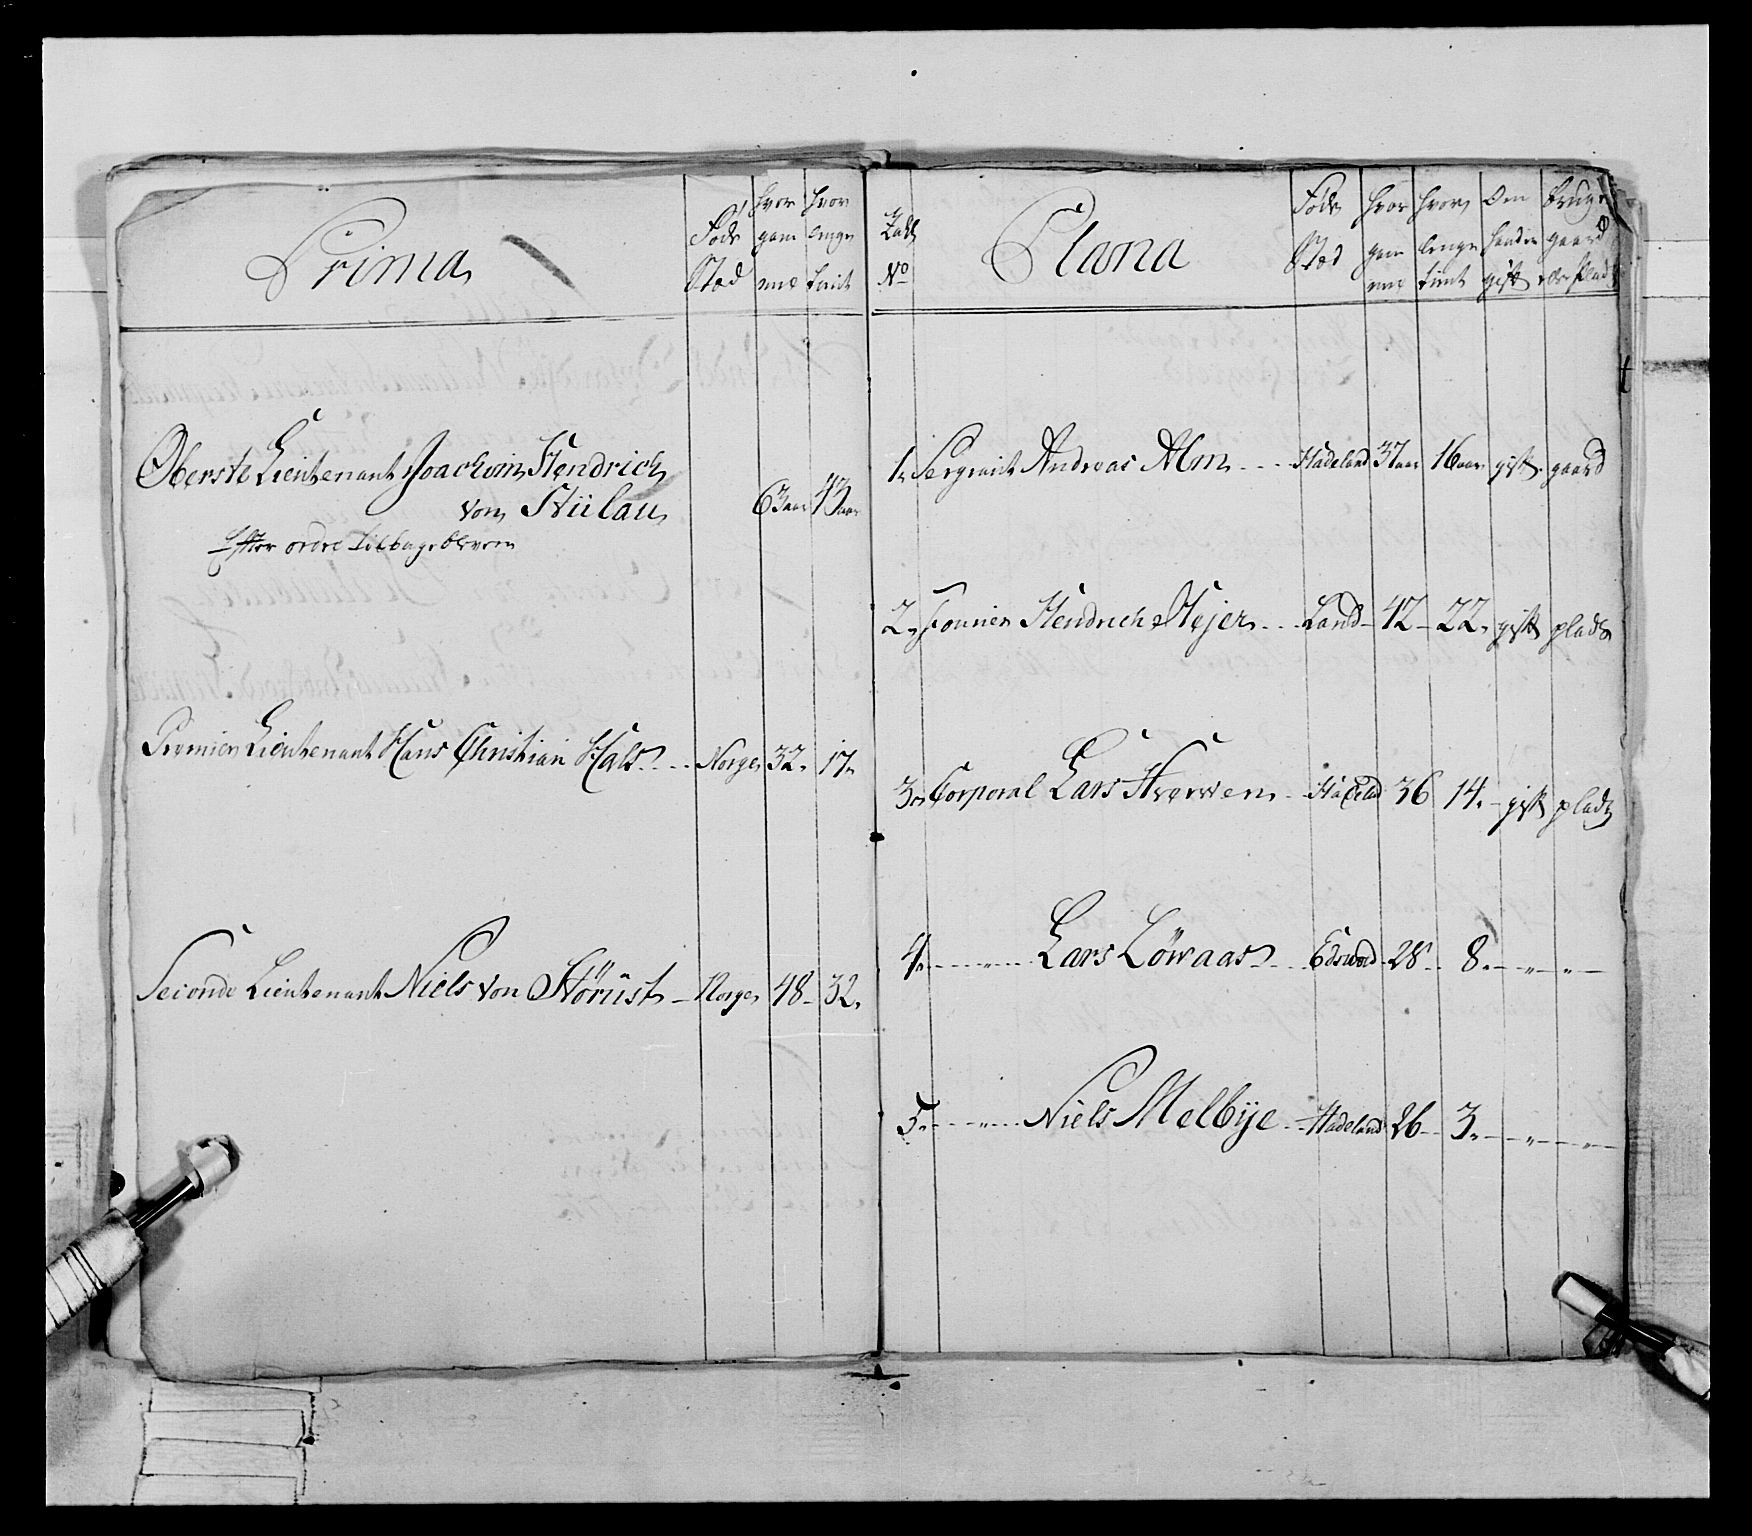 Prima
Føde Stæd
hvor gam mel
hvor lenge tient
Oberste Lieutenant Joachim Hendrich
von Hülau 63 aar 43 aar
Efter ordre Tilbagebleven
Premier Lieutenant Hans Christian Hals Norge 32 17
Seconde Lieutenant Niels von Hörüst Norge 48 32
No
Plana
Føde Stæd
hvor gam mel
hvor lenge tient
Om hand er gift
bruger gaard eller Plads
1 Sergeant Andreas Alm Hadeland 37 aar 16 aar gift gaard
2 Fourier Hendrich Mejer Land 42 22 gift plads
3 Corporal Lars Hverven Hadelad 36 14 gift plads
4 " Lars Löwaas 28 8 " "
5 " Niels Melbye Hadeland 26 3 " "